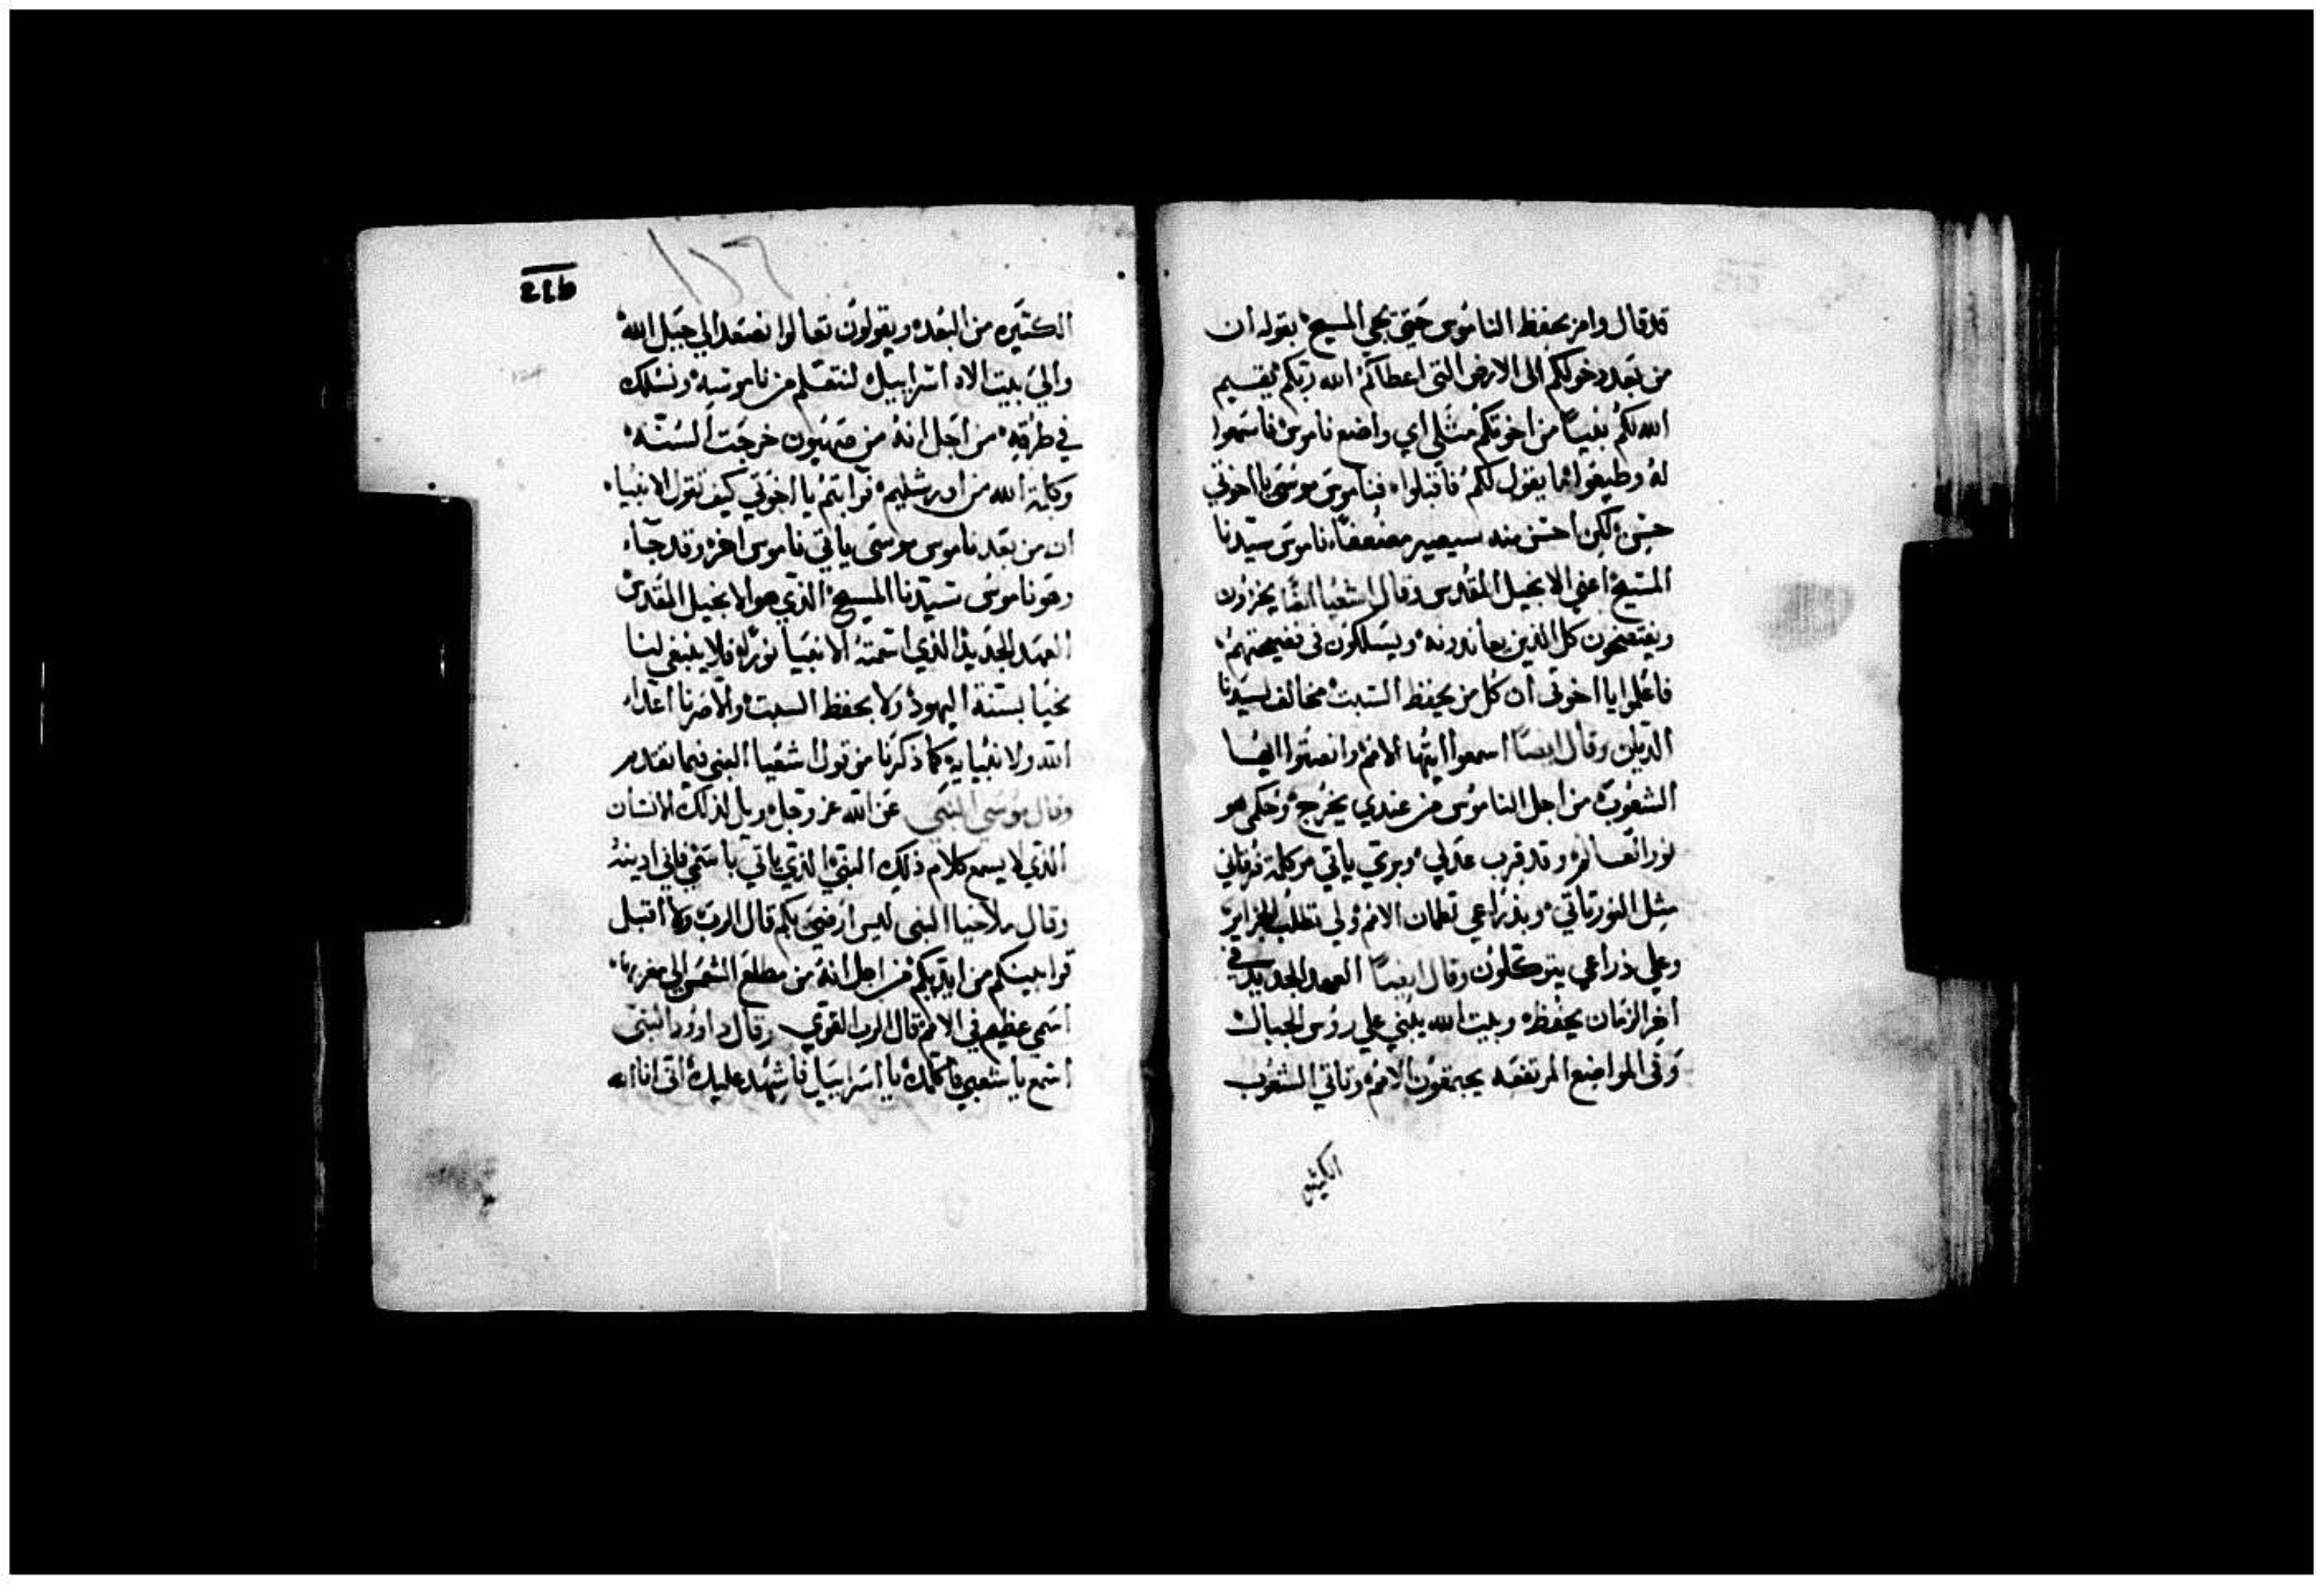 قد قال وامر بحفظ الناموس حتي يجي المسيح بقوله ان
من بعد دخولكم الى الارض التي اعطاكم الله ربكم يقسيم
الله لكم نبياً من اخوتكم مثلي اي واضع ناموس فاسمعوا
له وطيعوا ما يقول لكم فاقبلوا فناموس موسى يا اخوتي
حسن لكن احسن منه سيصير ناموس سيدنا
المسيح اعني الانجيل المقدس وقال اشعيا ايضا يخزون
ويفتضحون كل الذين يعاندونه ويسلكون في فضيحتهم
فاعلموا يا اخوتي ان كل من يحفظ السبت مخالف لسيدنا
وقال ايضاً اسمعوا ايتها الامم وانصتوا ايها
الشعوب من اجل الناموس من عندي يخرج وحكمي هو
نور العالم وقد قرب عدلي وبري ياتي
مثل النور تاتي وبذراعي الامم ولي تطلب الجزاير
وعلي ذراعي يتوكلون وقال ايضاً العهد الجديد في
اخر الزمان يحفظه وبيت الله يبني علي رؤس الجبال
وفي المواضع المرتفعه يجتمعون الامم وتاتي الشعوب
الكثيره
٢١٥
١٢٦
الكثيره من البعده ويقولون تعالوا نصعد الي جبل الله
والي بيت الاه اسراييل لنتعلم من ناموسه ونسلك
في طرقه من اجل انه من صهيون خرجت السنه
وكلمة الله من اورشليم فرايتم يا اخوتي كيف تقول الانبياء
ان من بعد ناموس موسى ياتي ناموس اخر وقد جاء
وهو ناموس سيدنا المسيح الذي هو الانجيل المقدس
العهد الجديد الذي اسمته الانبيا نورًا فلا ينبغي لنا
نحيا بسنة اليهود ولا بحفظ السبت والا صرنا اعداء
الله ولانبيايه كما ذكرنا من قول اشعيا النبي فيما تقدم
وقال موسي النبي عن الله عز وجل ويل لذلك الانسان
الذي لا يسمع كلام ذلك النبي الذي ياتي باسمي فاني ادينه
وقال ملاخيا النبي ليس ارضي بكم قال الرب ولا اقبل
قرابينكم من ايديكم من اجل انه من مطلع الشمس الي مغربها
اسمي عظيم في الامم قال الرب القوي وقال داوود النبي
اسمع يا شعبي فاكلمك يا اسراييل فاشهد عليك اني انا الله